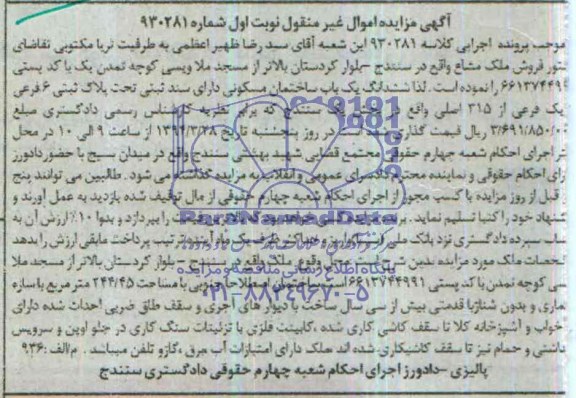 آگهی مزایده اموال غیر منقول نوبت اول شماره ۹۳۰۲۸۱
بموجب پرونده اجرایی کلاسه ۹۳۰۲۸۱ این شعبه آقای سید رضا ظهیر اعظمی به طرفیت ثریا مکتوبی تقاضای
فروش ملک مشاع واقع در سنندج -بلوار کردستان بالاتر از مسجد ملا ویسی کوچه تمدن یک با کد پستی
را نموده است. لذا ششدانگ یک باب ساختمان مسکونی دارای سند ثبتی تحت پلاک ثبتی ۶ فرعی
یک فرعی از ۳۱۵ اصلی واقع سنندج که برابر نظریه کارشناس رسمی دادگستری مبلغ
ریال قیمت گذاری در روز پنجشنبه تاریخ از ساعت ۹ الی ۱۰ در محل
اجرای احکام شعبه چهارم حقوقی مجتمع قضایی شهید بهشتی سنندج واقع در میدان بسیج با حضور دادورز
اجرای احکام حقوقی و نماینده محترم دادسرای عمومی و انقلاب به مزایده گذاشته می شود. طالبین می توانند پنج
قبل از روز مزایده با کسب مجوز از اجرای احکام شعبه چهارم حقوقی از مال توقیف شده بازدید به عمل آورند و
خود را کتبا تسلیم نمایند. را بپردازد و بدوا ۱۰٪ ارزش آن به
سپرده دادگستری نزد بانک ملی ترتیب پرداخت مابقی ارزش را بدهد
مشخصات ملک مورد مزایده بدین شرح است محل وقوع ملک واقع در سنندج - بلوار کردستان بالاتر از مسجد ملا
ویسی کوچه تمدن با کد پستی ۶۶۱۳۷۴۴۹۹۱ است ساختمان اصطلاحا جنوبی با مساحت ۲۴۴/۴۵ متر مربع با سازه
و بدون شناژ با قدمتی بیش از سی سال ساخت با دیوار های آجری و سقف طاق ضربی احداث شده دارای
خواب و آشپزخانه کلا تا سقف کاشی کاری شده، کابینت فلزی با تزئینات سنگ کاری در جلو اوپن و سرویس
بهداشتی و حمام نیز تا سقف کاشیکاری شده اند ملک دارای امتیازات آب، برق، گاز و تلفن میباشد. م/الف: ۹۳۶
پالیزی -دادورز اجرای احکام شعبه چهارم حقوقی دادگستری سنندج
ParsNamadData
پایگاه اطلاع رسانی مناقصه و مزایده
۰۲۱-۸۸۳۴۹۶۷۰-۵